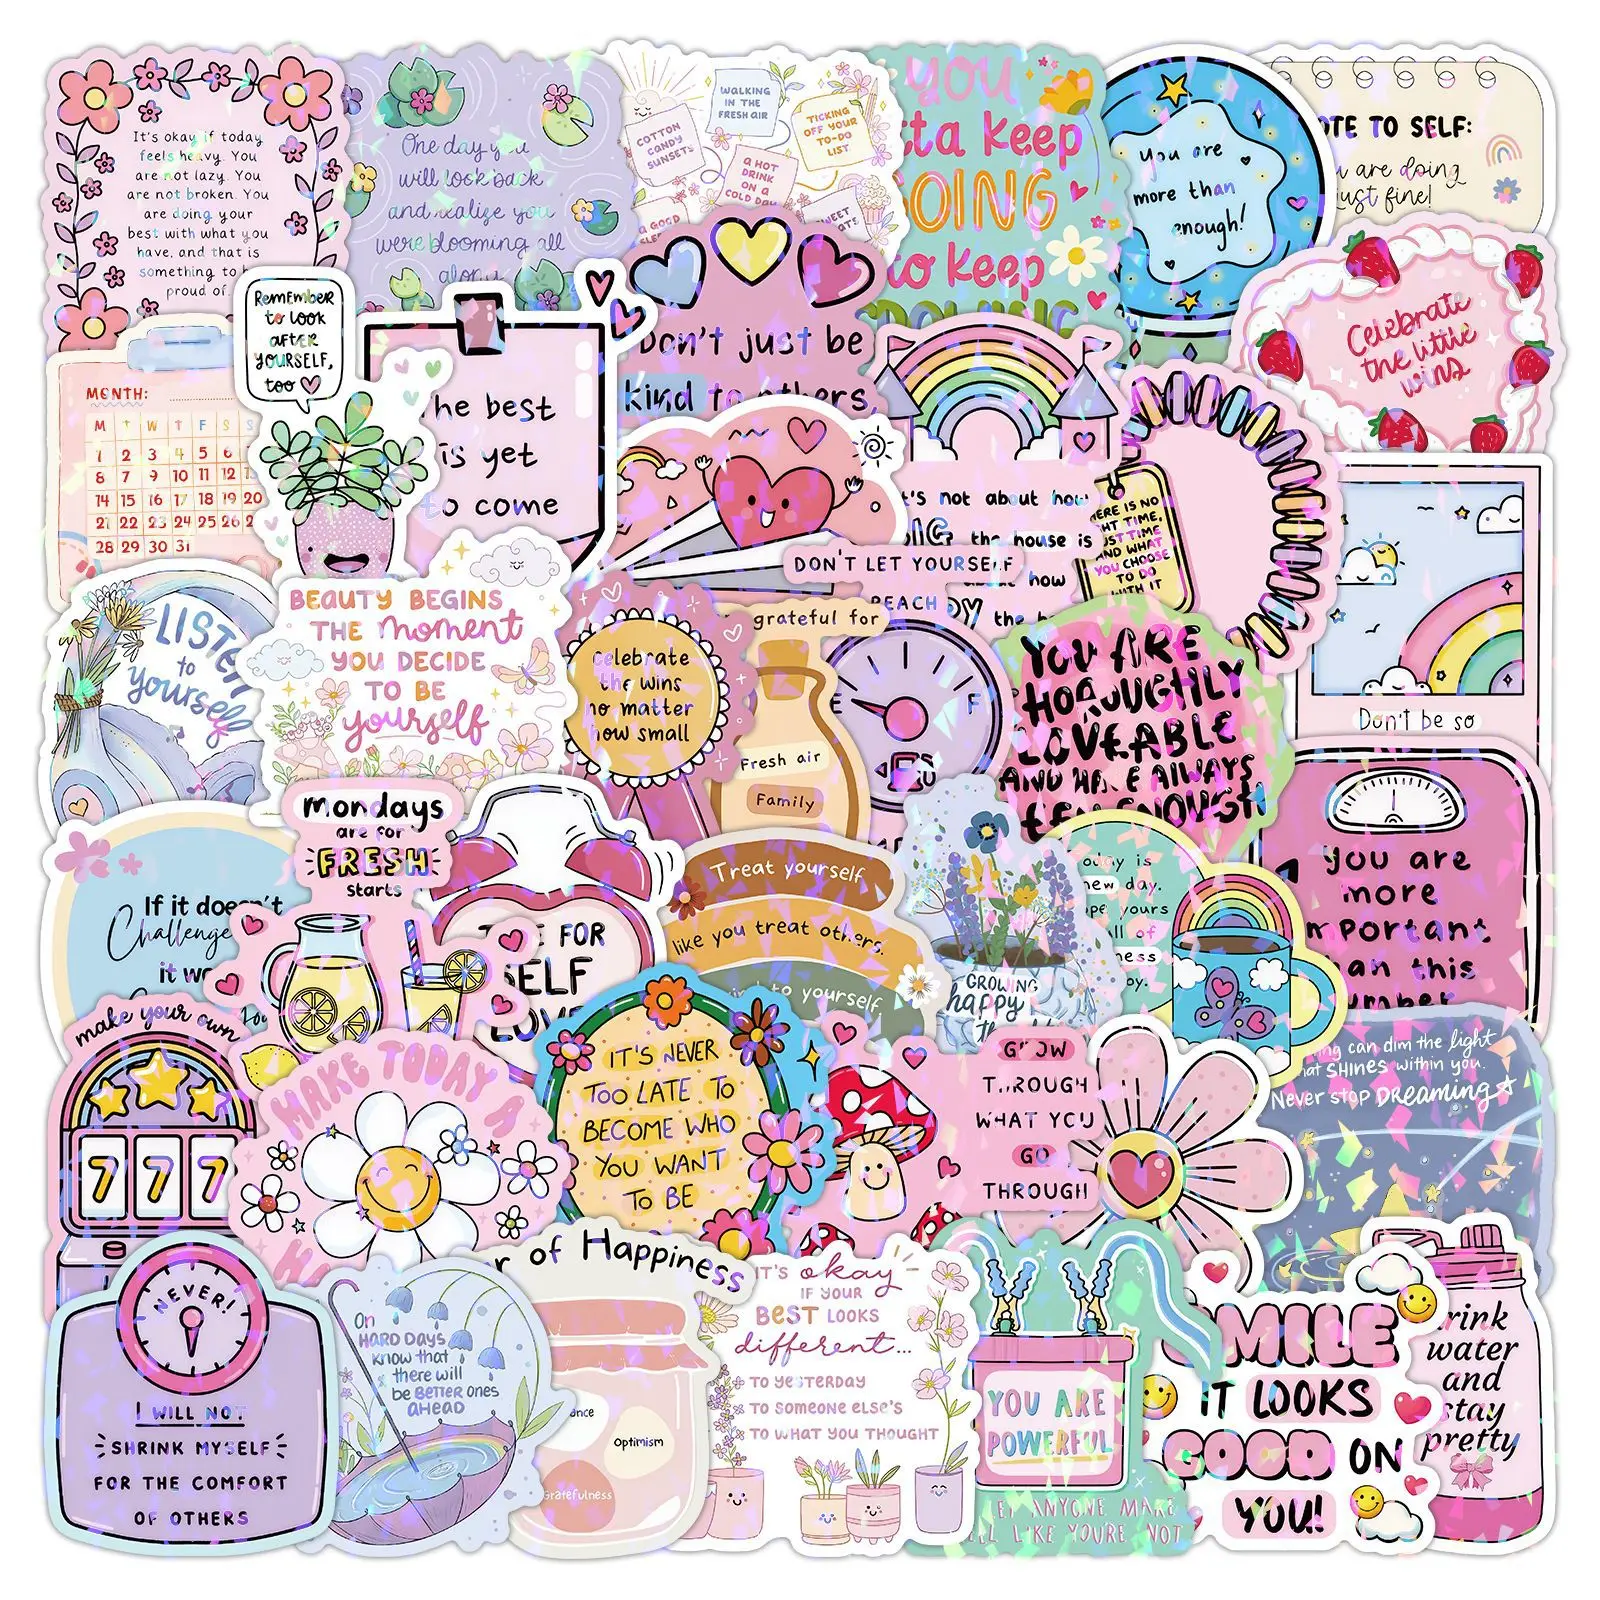 It's okay if today
feels heavy. You
are not lazy. You
are not broken. You
are doing your
best with what you
have, and that is
something to
proud of.
One day you
will look back
and realize you
were blooming all
along
WALKING
IN THE
FRESH AIR
COTTON
CANDY
SUNSETS
TICKING
OFF YOUR
TO-DO
LIST
A HOT
DRINK
ON A
COLD DAY
A GOOD
YOU
keep
GOING
to keep
You are
more than
enough!
TO SELF:
are doing
just fine!
Celebrate
the little
wins
REMEMBER
to look
after
YOURSELF,
too
MONTH:
M T W T F S S
1 2 3 4 5 6
8 7 9 10 11 12 13
14 15 16 17 18 19 20
21 22 23 24 25 26
28 29 30 31
The best
is yet
to come
Don't just be
kind to others,
it's not about how
BIG the house is
how
the
THERE IS NO
TIME,
JUST TIME
AND WHAT
YOU CHOOSE
TO DO
WITH IT
DON'T LET YOURSELF
REACH
E F
Don't be so
LISTEN
to
yourself
BEAUTY BEGINS
THE moment
YOU DECIDE
TO BE
yourself
Celebrate
the wins
no matter
how small
grateful for
Fresh air
Family
YOU ARE
THOROUGHLY
LOVEABLE
AND HAVE ALWAYS
BEEN ENOUGH
You are
more
important
than this
number
If it doesn't
Challenge
it
mondays
are for
FRESH
starts
FOR
SELF
LOVE
Treat yourself
like you treat others.
to yourself
GROWING
happy
is
new day.
yours
of
make your own
777
MAKE TODAY A
IT'S NEVER
TOO LATE TO
BECOME WHO
YOU WANT
TO BE
GROW
THROUGH
WHAT YOU
GO
THROUGH
can dim the light
that SHINES within you.
Never stop DREAMING
NEVER!
I WILL NOT
SHRINK MYSELF
FOR THE COMFORT
OF OTHERS
On
HARD DAYS
know that
there will
be BETTER ones
AHEAD
of Happiness
Optimism
Gratefulness
IT'S okay
IF YOUR
BEST LOOKS
different...
TO YESTERDAY
TO SOMEONE ELSE'S
TO WHAT YOU THOUGHT
YOU ARE
POWERFUL
LET ANYONE MAKE
FEEL LIKE YOU'RE NOT
SMILE
IT LOOKS
GOOD ON
YOU!
Drink
water
and
stay
pretty